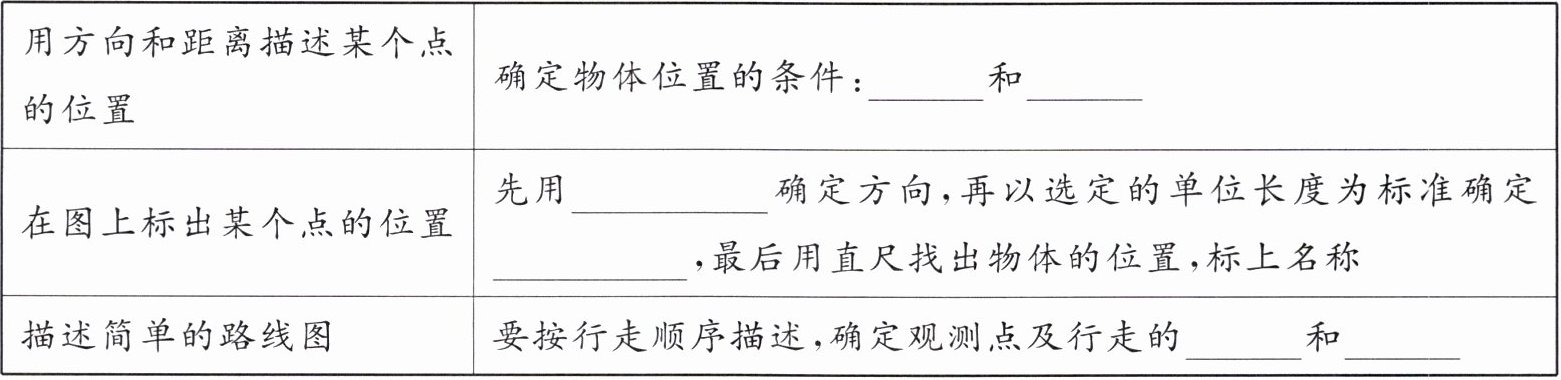 用方向和距离描述某个点
的位置
确定物体位置的条件:______和______
在图上标出某个点的位置
先用__________确定方向,再以选定的单位长度为标准确定
__________,最后用直尺找出物体的位置,标上名称
描述简单的路线图
要按行走顺序描述,确定观测点及行走的______和______